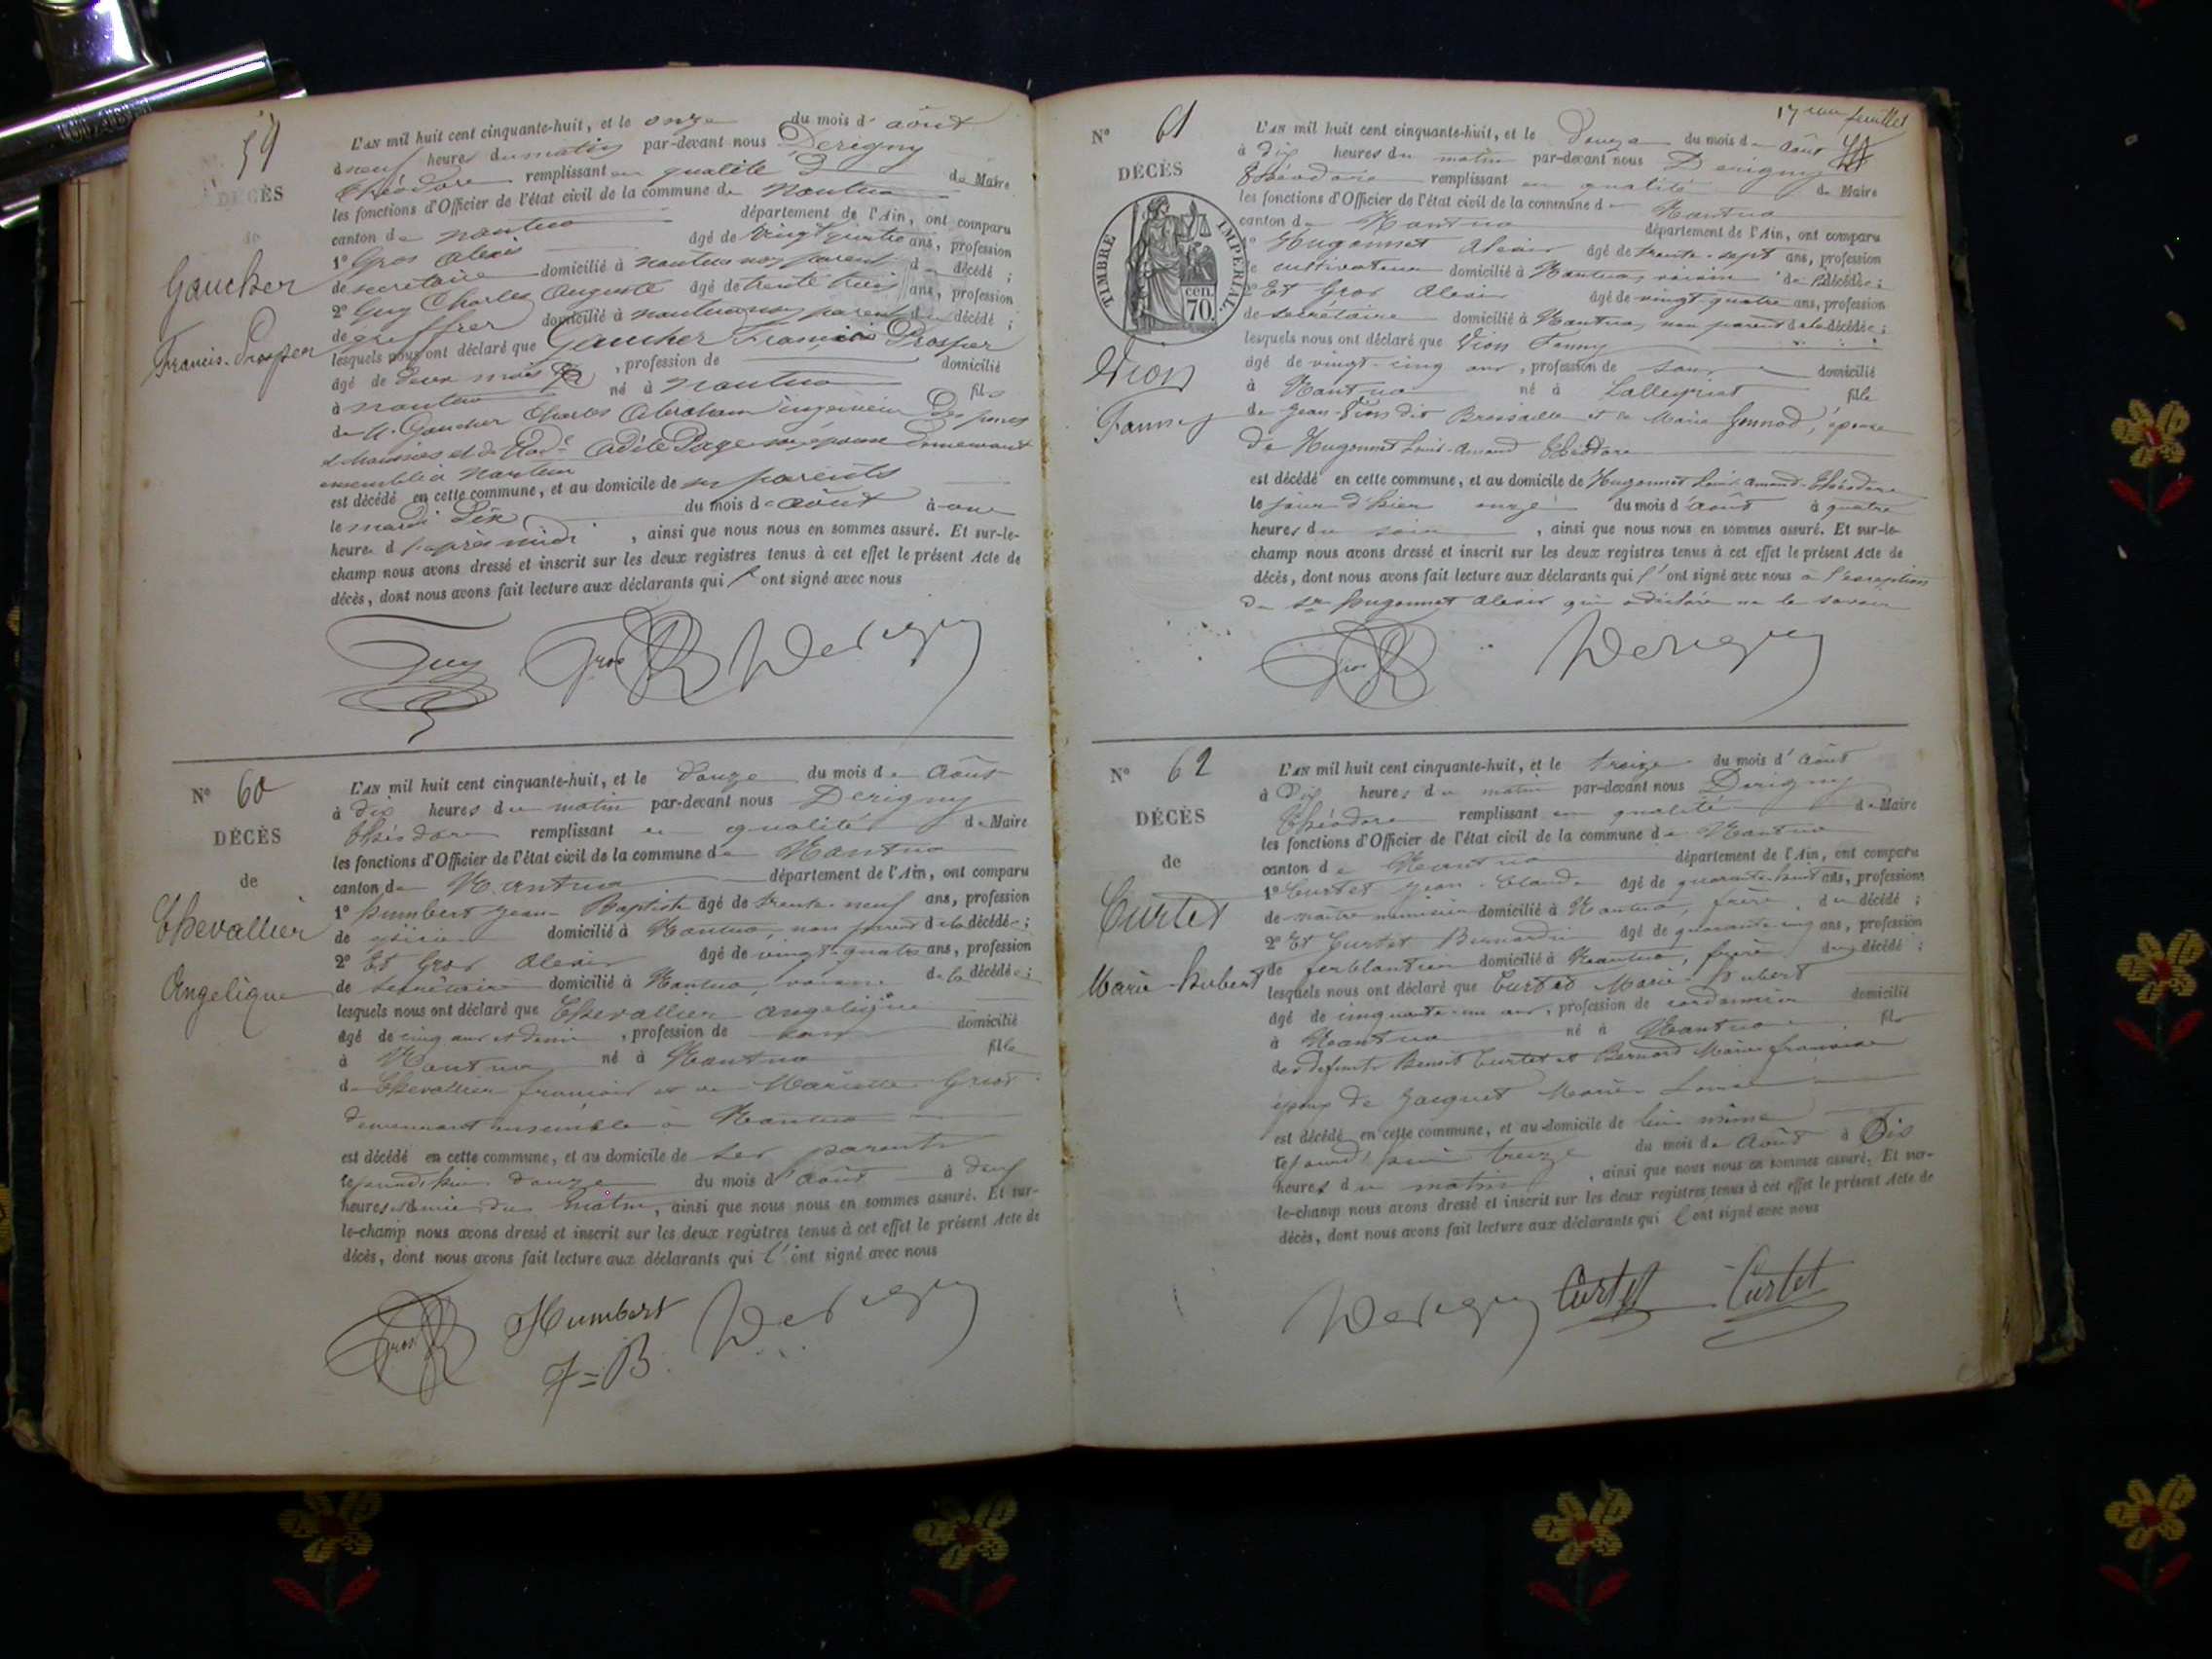 59
DÉCÈS
de
Gaucher
Francis-Prosper
L'AN mil huit cent cinquante-huit, et le onze du mois d' août
à neuf heures du matin par-devant nous Derigny
Théodore remplissant en qualité de Maire
les fonctions d'Officier de l'état civil de la commune de nantua
canton de nantua département de l'Ain, ont comparu
1° Gros Alexis âgé de vingt quatre ans, profession
de secrétaire domicilié à nantua non parent du décédé ;
2° Guy Charles Auguste âgé de trente trois ans, profession
de greffier domicilié à nantua non parent du décédé ;
lesquels nous ont déclaré que Gaucher Francis Prosper
âgé de deux mois , profession de domicilié
à nantua né à nantua fils
de M. Gaucher Charles Abraham ingénieur des ponts
et chaussées et de Mad.e Adèle Page son épouse demeurant
ensemble à nantua
est décédé en cette commune, et au domicile de ses parents
le mardi dix du mois d'août à une
heure d l'après midi , ainsi que nous nous en sommes assuré. Et sur-le-
champ nous avons dressé et inscrit sur les deux registres tenus à cet effet le présent Acte de
décès, dont nous avons fait lecture aux déclarants qui l'ont signé avec nous
Guy Gros Derigny
N° 60
DÉCÈS
de
Chevallier
Angelique
L'AN mil huit cent cinquante-huit, et le douze du mois de Août
à dix heures du matin par-devant nous Derigny
Théodore remplissant en qualité de Maire
les fonctions d'Officier de l'état civil de la commune de Nantua
canton de Nantua département de l'Ain, ont comparu
1° humbert Jean Baptiste âgé de trente neuf ans, profession
de domicilié à Nantua, non parent de la décédée ;
2° Et Gros Alexis âgé de vingt-quatre ans, profession
de secrétaire domicilié à Nantua, voisin de la décédée ;
lesquels nous ont déclaré que Chevallier Angelique
âgé de cinq ans et demi , profession de domicilié
à Nantua né à Nantua fille
de Chevallier françois et de Mariette
demeurant ensemble à Nantua
est décédé en cette commune, et au domicile de ses parents
le jourd'hui douze du mois d'Août à
heures et demie du matin, ainsi que nous nous en sommes assuré. Et sur-
le-champ nous avons dressé et inscrit sur les deux registres tenus à cet effet le présent Acte de
décès, dont nous avons fait lecture aux déclarants qui l'ont signé avec nous
Gros Humbert Derigny
J=B
17 eme feuillet
N° 61
DÉCÈS
TIMBRE IMPÉRIAL.
70 cen.
Vion
Fanny
L'AN mil huit cent cinquante-huit, et le Douze du mois de Août
à dix heures du matin par-devant nous Derigny
Théodore remplissant en qualité de Maire
les fonctions d'Officier de l'état civil de la commune de Nantua
canton de Nantua département de l'Ain, ont comparu
1° Hugonnet Alexis âgé de trente-sept ans, profession
de cultivateur domicilié à Nantua, voisin de la décédée ;
2° Et Gros Alexis âgé de vingt-quatre ans, profession
de secrétaire domicilié à Nantua, non parent de la décédée ;
lesquels nous ont déclaré que Vion Fanny
âgé de vingt-cinq ans, profession de sans domicilié
à Nantua né à Lalleyriat fille
de Jean Vion dit et de Marie Gonnod, épouse
de Hugonnet Louis-Amand Théodore
est décédé en cette commune, et au domicile de Hugonnet Louis-Amand-Théodore
le jour d'hier onze du mois d'août à quatre
heures du soir , ainsi que nous nous en sommes assuré. Et sur-le-
champ nous avons dressé et inscrit sur les deux registres tenus à cet effet le présent Acte de
décès, dont nous avons fait lecture aux déclarants qui l'ont signé avec nous à l'exception
du sr hugonnet Alexis qui a déclaré ne le savoir
Gros Derigny
N° 62
DÉCÈS
de
Curtet
Marie-hubert
L'AN mil huit cent cinquante-huit, et le treize du mois d'Août
à Dix heures du matin par-devant nous Derigny
Théodore remplissant en qualité de Maire
les fonctions d'Officier de l'état civil de la commune de Nantua
canton de Nantua département de l'Ain, ont comparu
1° Curtet Jean-Claude âgé de quarante-huit ans, profession
de maître menuisier domicilié à Nantua, frère du décédé ;
2° Et Curtet Bernardin âgé de quarante cinq ans, profession
de ferblantier domicilié à Nantua, frère du décédé ;
lesquels nous ont déclaré que Curtet Marie hubert
âgé de cinquante-un ans, profession de cordonnier domicilié
à Nantua né à Nantua fils
des défunts Benoit Curtet et Bernard Marie françoise
époux de Jacquet Marie Louise
est décédé en cette commune, et au domicile de lui même
le jourd'hui treize du mois de Août à Dix
heures du matin , ainsi que nous nous en sommes assuré. Et sur-
le-champ nous avons dressé et inscrit sur les deux registres tenus à cet effet le présent Acte de
décès, dont nous avons fait lecture aux déclarants qui l'ont signé avec nous
Derigny Curtet Curtet